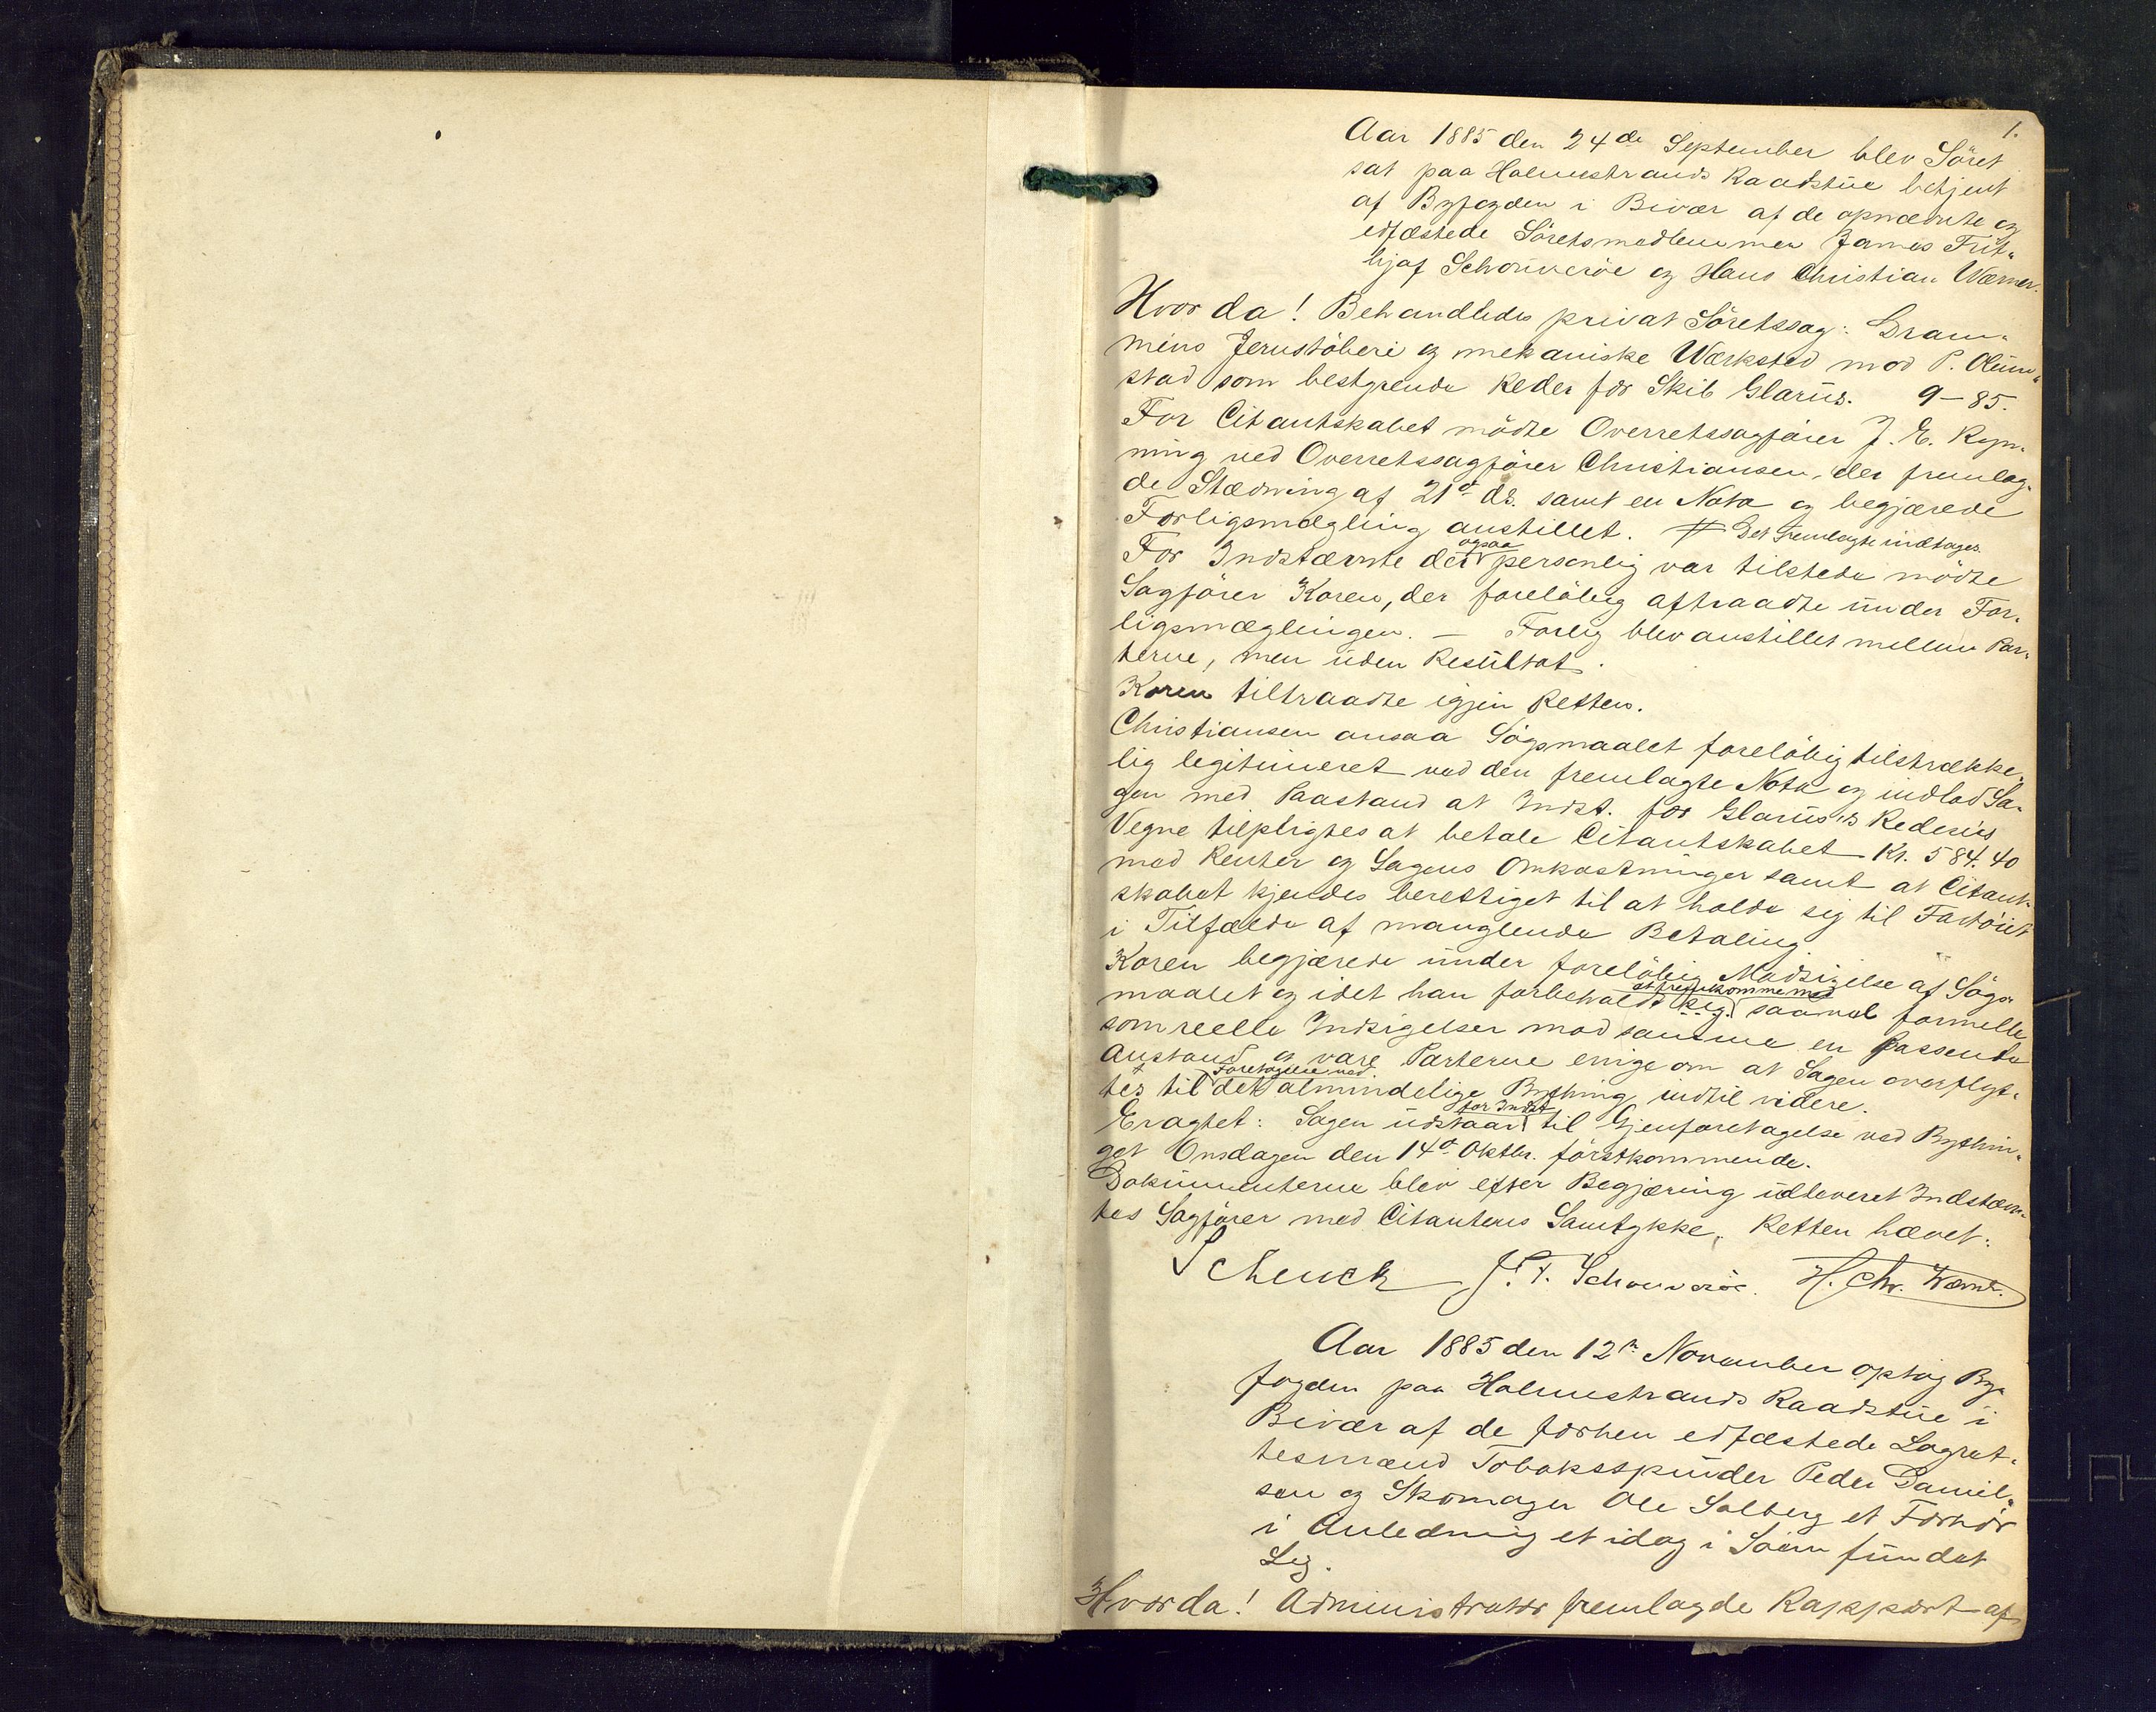 1.
Aar 1885 den 24de September blev Söret
sat paa Holmestrands Raadstue betjent
af Byfogden i Bivær af de opnævnte og
edfæstede Söretsmedlemmer James Frit-
hjof Schouveröe og Hans Christian Wærner.
Hvor da! Behandledes privat Söretssag: Dram-
mens Jernstöberi og mekaniske Værksted mod P.
stad som bestyrende Reder for Skib Glarus. 9-85.
For Citantskabet mödte Overretssagförer J. E. Ryn-
ning ved Overretssagförer Christiansen, der fremlag-
de Stævning af 21d ds. samt en Nota og begjærede
Forligsmægling anstillet. # Det Fremlagte indtages
For Indstævnte der ogsaa personlig var tilstede mödte
Sagförer Koren, der forelöbig aftraadte under For-
ligsmæglingen. – Forlig blev anstillet mellem Par-
terne, men uden Resultat.
Koren tiltraadte igjen Retten.
Christiansen ansaa Sögsmaalet forelöbig tilstrække-
lig legitimeret ved den fremlagte Nota og indlod Sa-
gen med Paastand at Indst. for Glarus's Rederies
Vegne tilpligtes at betale Citantskabet Kr. 584.40
med Renter og Sagens Omkostninger samt at Citant-
skabet kjendes berettiget til at holde sig til Fartöiet
i Tilfælde af manglende Betaling
Koren begjærede under forelöbig Modsigelse af Sögs-
maalet og idet han forbeholdt sig at fremkomme med saavel formelle
som reelle Indsigelser mod samme en passende
Anstand og vare Parterne enige om at Sagen overflyt-
tes til Foretagelse ved det almindelige Bything indtil videre.
Eragtet: Sagen udstaar for Indst. til Gjenforetagelse ved Bythin-
get Onsdagen den 14d Oktbr. förstkommende.
Dokumenterne blev efter Begjæring udleveret Indstævn-
tes Sagförer med Citantens Samtykke. Retten hævet:
Schenck J. F. Schouveröe. H. Chr. Værner.
Aar 1885 den 12te November optog By-
fogden paa Holmestrands Raadstue i
Bivær af de forhen edfæstede Lagret-
tesmænd Tobaksspinder Peder Daniel-
sen og Skomager Ole Solberg et Forhör
i Anledning et idag i Söen fundet
Lig.
Hvorda! Administrator fremlagde Rapport af